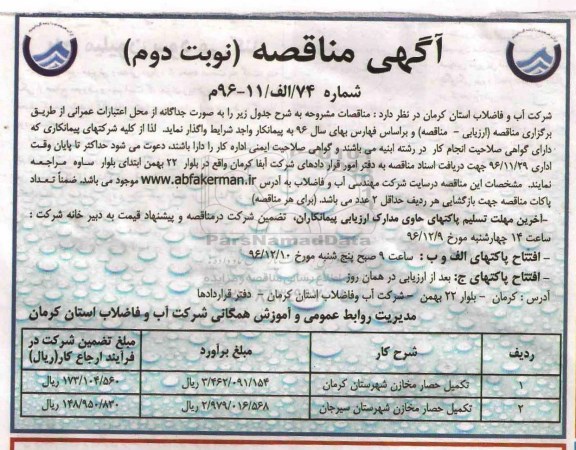 آگهی مناقصه (نوبت دوم)
شماره ۷۴/الف/۱۱-۹۶م
شرکت آب و فاضلاب استان کرمان در نظر دارد : مناقصات مشروحه به شرح جدول زیر را به صورت جداگانه از محل اعتبارات عمرانی از طریق
برگزاری مناقصه (ارزیابی - مناقصه) و براساس فهارس بهای سال ۹۶ به پیمانکار واجد شرایط واگذار نماید. لذا از کلیه شرکتهای پیمانکاری که
دارای گواهی صلاحیت انجام کار در رشته ابنیه می باشند و گواهی صلاحیت ایمنی اداره کار را دارا باشند، دعوت می شود حداکثر تا پایان وقت
اداری ۹۶/۱۱/۲۹ جهت دریافت اسناد مناقصه به دفتر امور قرار دادهای شرکت آبفا کرمان واقع در بلوار ۲۲ بهمن ابتدای بلوار ساوه مراجعه
نمایند. مشخصات این مناقصه درسایت شرکت مهندسی آب و فاضلاب به آدرس www.abfakerman.ir موجود می باشد. ضمناً تعداد
پاکات مناقصه جهت بازگشایی هر ردیف حداقل ۲ عدد می باشد. (برای هر مناقصه)
-آخرین مهلت تسلیم پاکتهای حاوی مدارک ارزیابی پیمانکاران، تضمین شرکت درمناقصه و پیشنهاد قیمت به دبیر خانه شرکت :
ساعت ۱۴ چهارشنبه مورخ ۹۶/۱۲/۹
- افتتاح پاکتهای الف و ب : ساعت ۹ صبح پنج شنبه مورخ ۹۶/۱۲/۱۰
- افتتاح پاکتهای ج: بعد از ارزیابی در همان روز
آدرس : کرمان - بلوار ۲۲ بهمن - شرکت آب وفاضلاب استان کرمان - دفتر قراردادها
مدیریت روابط عمومی و آموزش همگانی شرکت آب و فاضلاب استان کرمان
ردیف شرح کار مبلغ برآورد مبلغ تضمین شرکت در فرآیند ارجاع کار(ریال)
۱ تکمیل حصار مخازن شهرستان کرمان ۳/۴۶۲/۰۹۱/۱۵۴ ریال ۱۷۳/۱۰۴/۵۶۰ ریال
۲ تکمیل حصار مخازن شهرستان سیرجان ۲/۹۷۹/۰۱۶/۵۶۸ ریال ۱۴۸/۹۵۰/۸۳۰ ریال
ParsNamadData